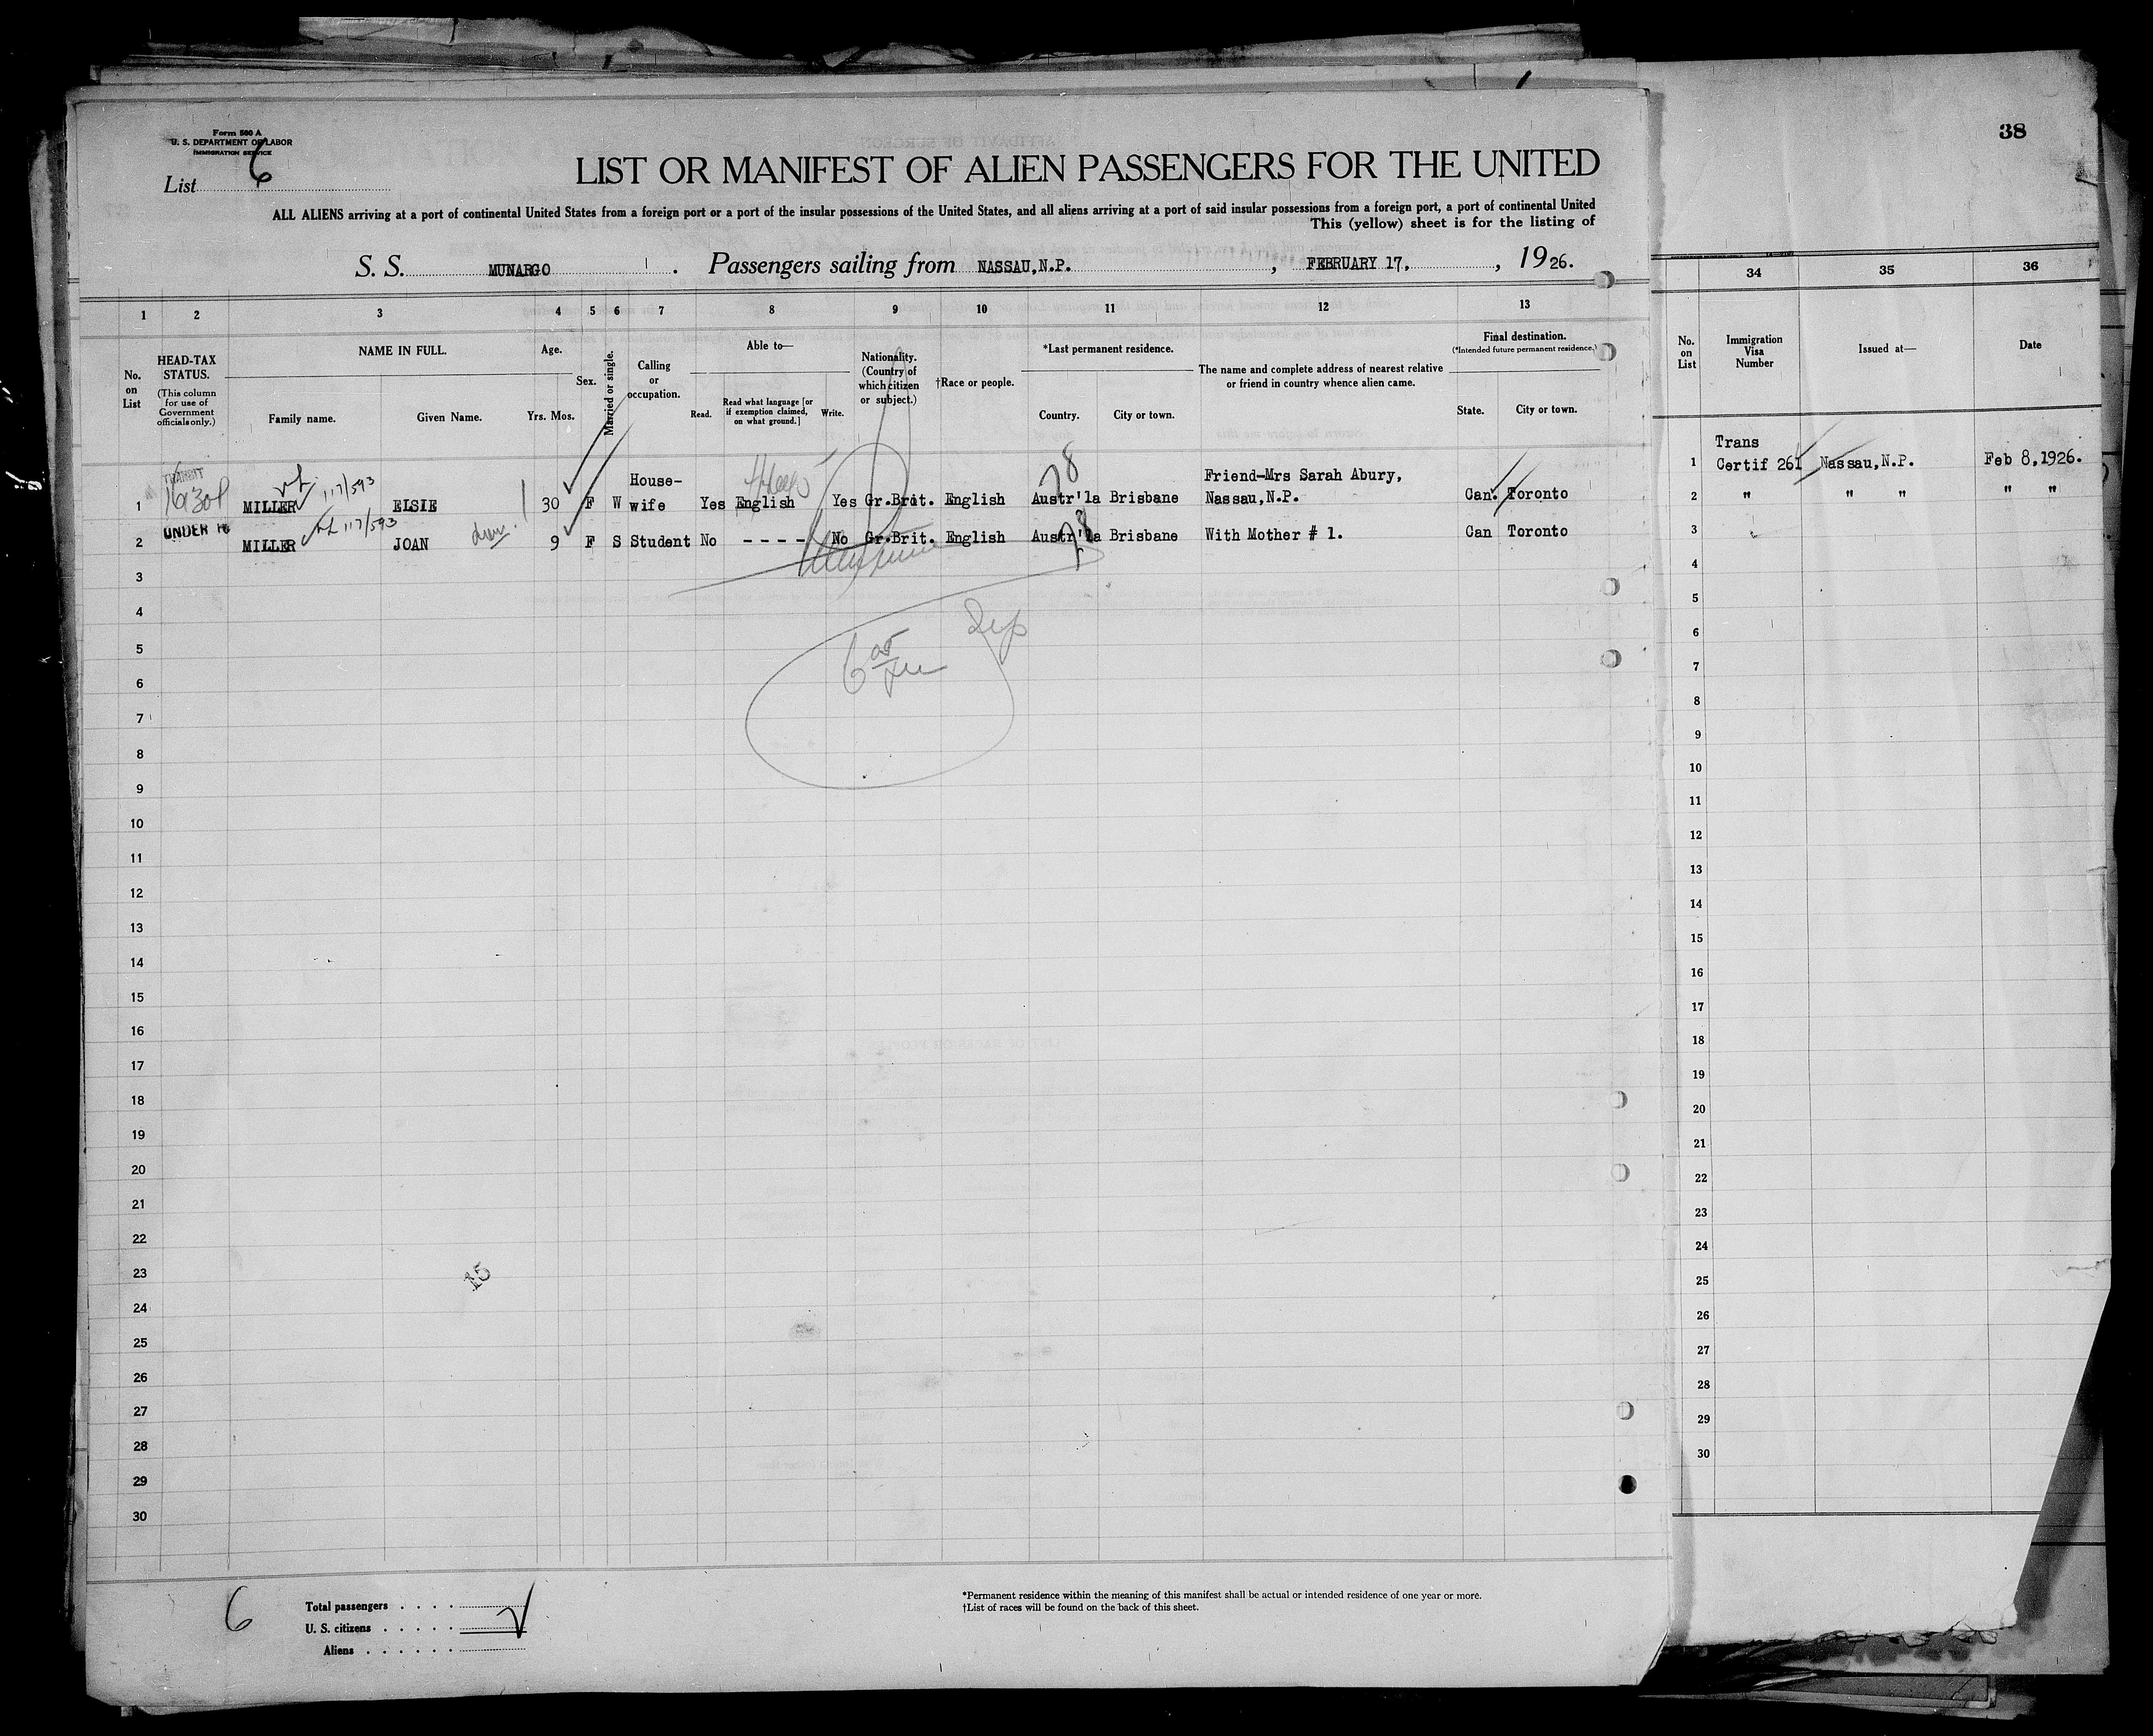 Form 500 A
U. S. DEPARTMENT OF LABOR
IMMIGRATION SERVICE
List 6
38
LIST OR MANIFEST OF ALIEN PASSENGERS FOR THE UNITED
ALL ALIENS arriving at a port of continental United States from a foreign port or a port of the insular possessions of the United States, and all aliens arriving at a port of said insular possessions from a foreign port, a port of continental United
This (yellow) sheet is for the listing of
S. S. MUNARGO . Passengers sailing from NASSAU,N.P. , FEBRUARY 17, , 1926.
1 2 3 4 5 6 7 8 9 10 11 12 13
No. on List
HEAD-TAX STATUS.
(This column for use of Government officials only.)
NAME IN FULL.
Family name. Given Name.
Age.
Yrs. Mos.
Sex.
Married or single.
Calling or occupation.
Able to—
Read. Read what language [or if exemption claimed, on what ground.] Write.
Nationality. (Country of which citizen or subject.)
†Race or people.
*Last permanent residence.
Country. City or town.
The name and complete address of nearest relative or friend in country whence alien came.
Final destination.
(*Intended future permanent residence.)
State. City or town.
TRANSIT
117/593
78
1 MILLER ELSIE 30 F W House-wife Yes English Yes Gr.Brit. English Austr'la Brisbane Friend-Mrs Sarah Abury, Nassau,N.P. Can. Toronto
UNDER 16
117/593
78
2 MILLER JOAN 9 F S Student No ---- No Gr.Brit. English Austr'la Brisbane With Mother # 1. Can Toronto
3
4
5
6
7
8
9
10
11
12
13
14
15
16
17
18
19
20
21
22
23
15
24
25
26
27
28
29
30
6
Total passengers . . . .
U. S. citizens . . . . .
Aliens . . . . . .
*Permanent residence within the meaning of this manifest shall be actual or intended residence of one year or more.
†List of races will be found on the back of this sheet.
34 35 36
No. on List
Immigration Visa Number
Issued at—
Date
Trans
1 Certif 261 Nassau,N.P. Feb 8,1926.
2 " " " " "
3
4
5
6
7
8
9
10
11
12
13
14
15
16
17
18
19
20
21
22
23
24
25
26
27
28
29
30